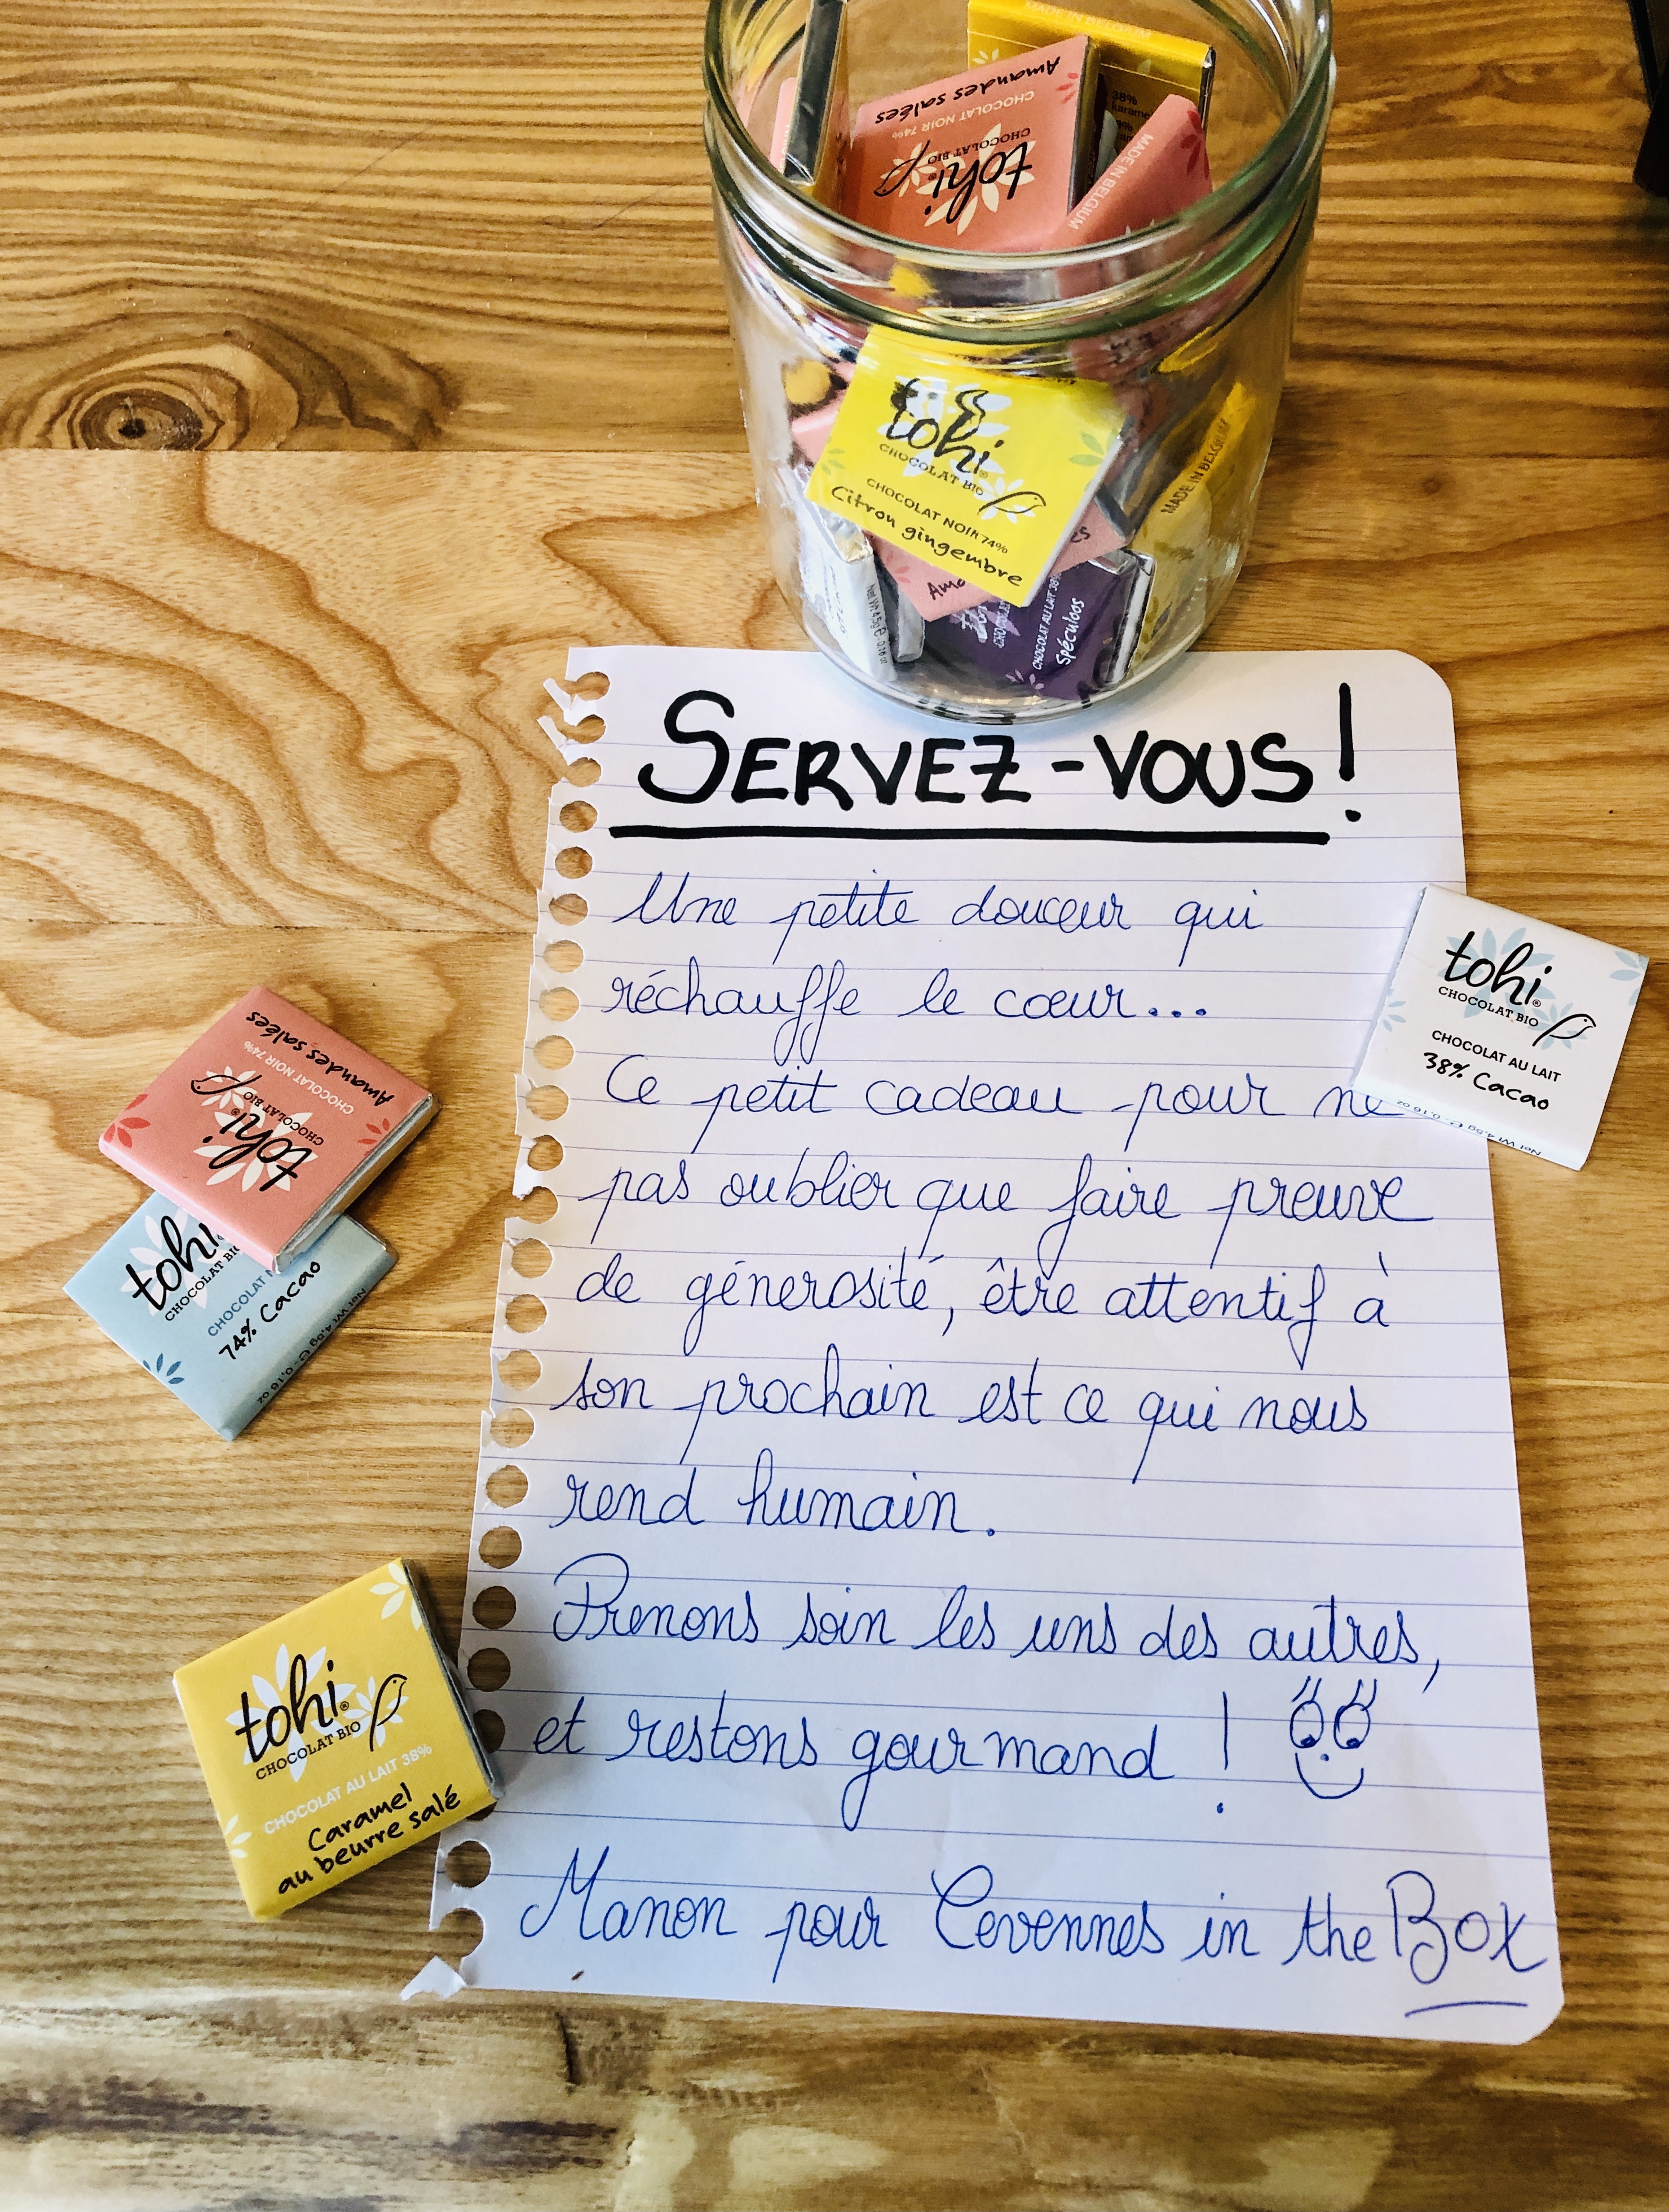 MADE IN BELGIUM
38%
Amandes salées
CHOCOLAT NOIR 74%
CHOCOLAT BIO
tohi
MADE IN BELGIUM
tohi
CHOCOLAT BIO
CHOCOLAT NOIR 74%
Citron gingembre
MADE IN BELGIUM
CHOCOLAT AU LAIT 38%
Spéculoos
SERVEZ-VOUS!
Une petite douceur qui
réchauffe le cœur...
Ce petit cadeau pour ne
pas oublier que faire preuve
de génerosité, être attentif à
son prochain est ce qui nous
rend humain.
Prenons soin les uns des autres,
et restons gourmand !
Manon pour Cevennes in the Box
tohi®
CHOCOLAT BIO
CHOCOLAT AU LAIT
38% Cacao
Net Wt 4,5g e - 0,16 oz
Amandes salées
CHOCOLAT NOIR 74%
CHOCOLAT BIO
tohi®
tohi
CHOCOLAT BIO
CHOCOLAT N
74% Cacao
Net Wt 4,5g e - 0,16 oz
tohi®
CHOCOLAT BIO
CHOCOLAT AU LAIT 38%
Caramel
au beurre salé